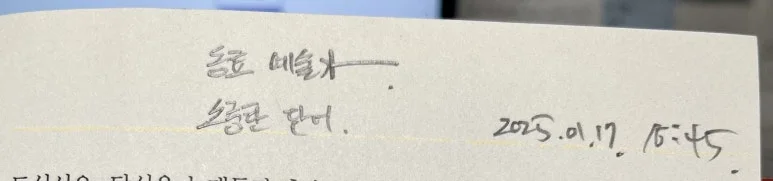 동료 예술가.
소중한 단어.
2025.01.17. 15:45.